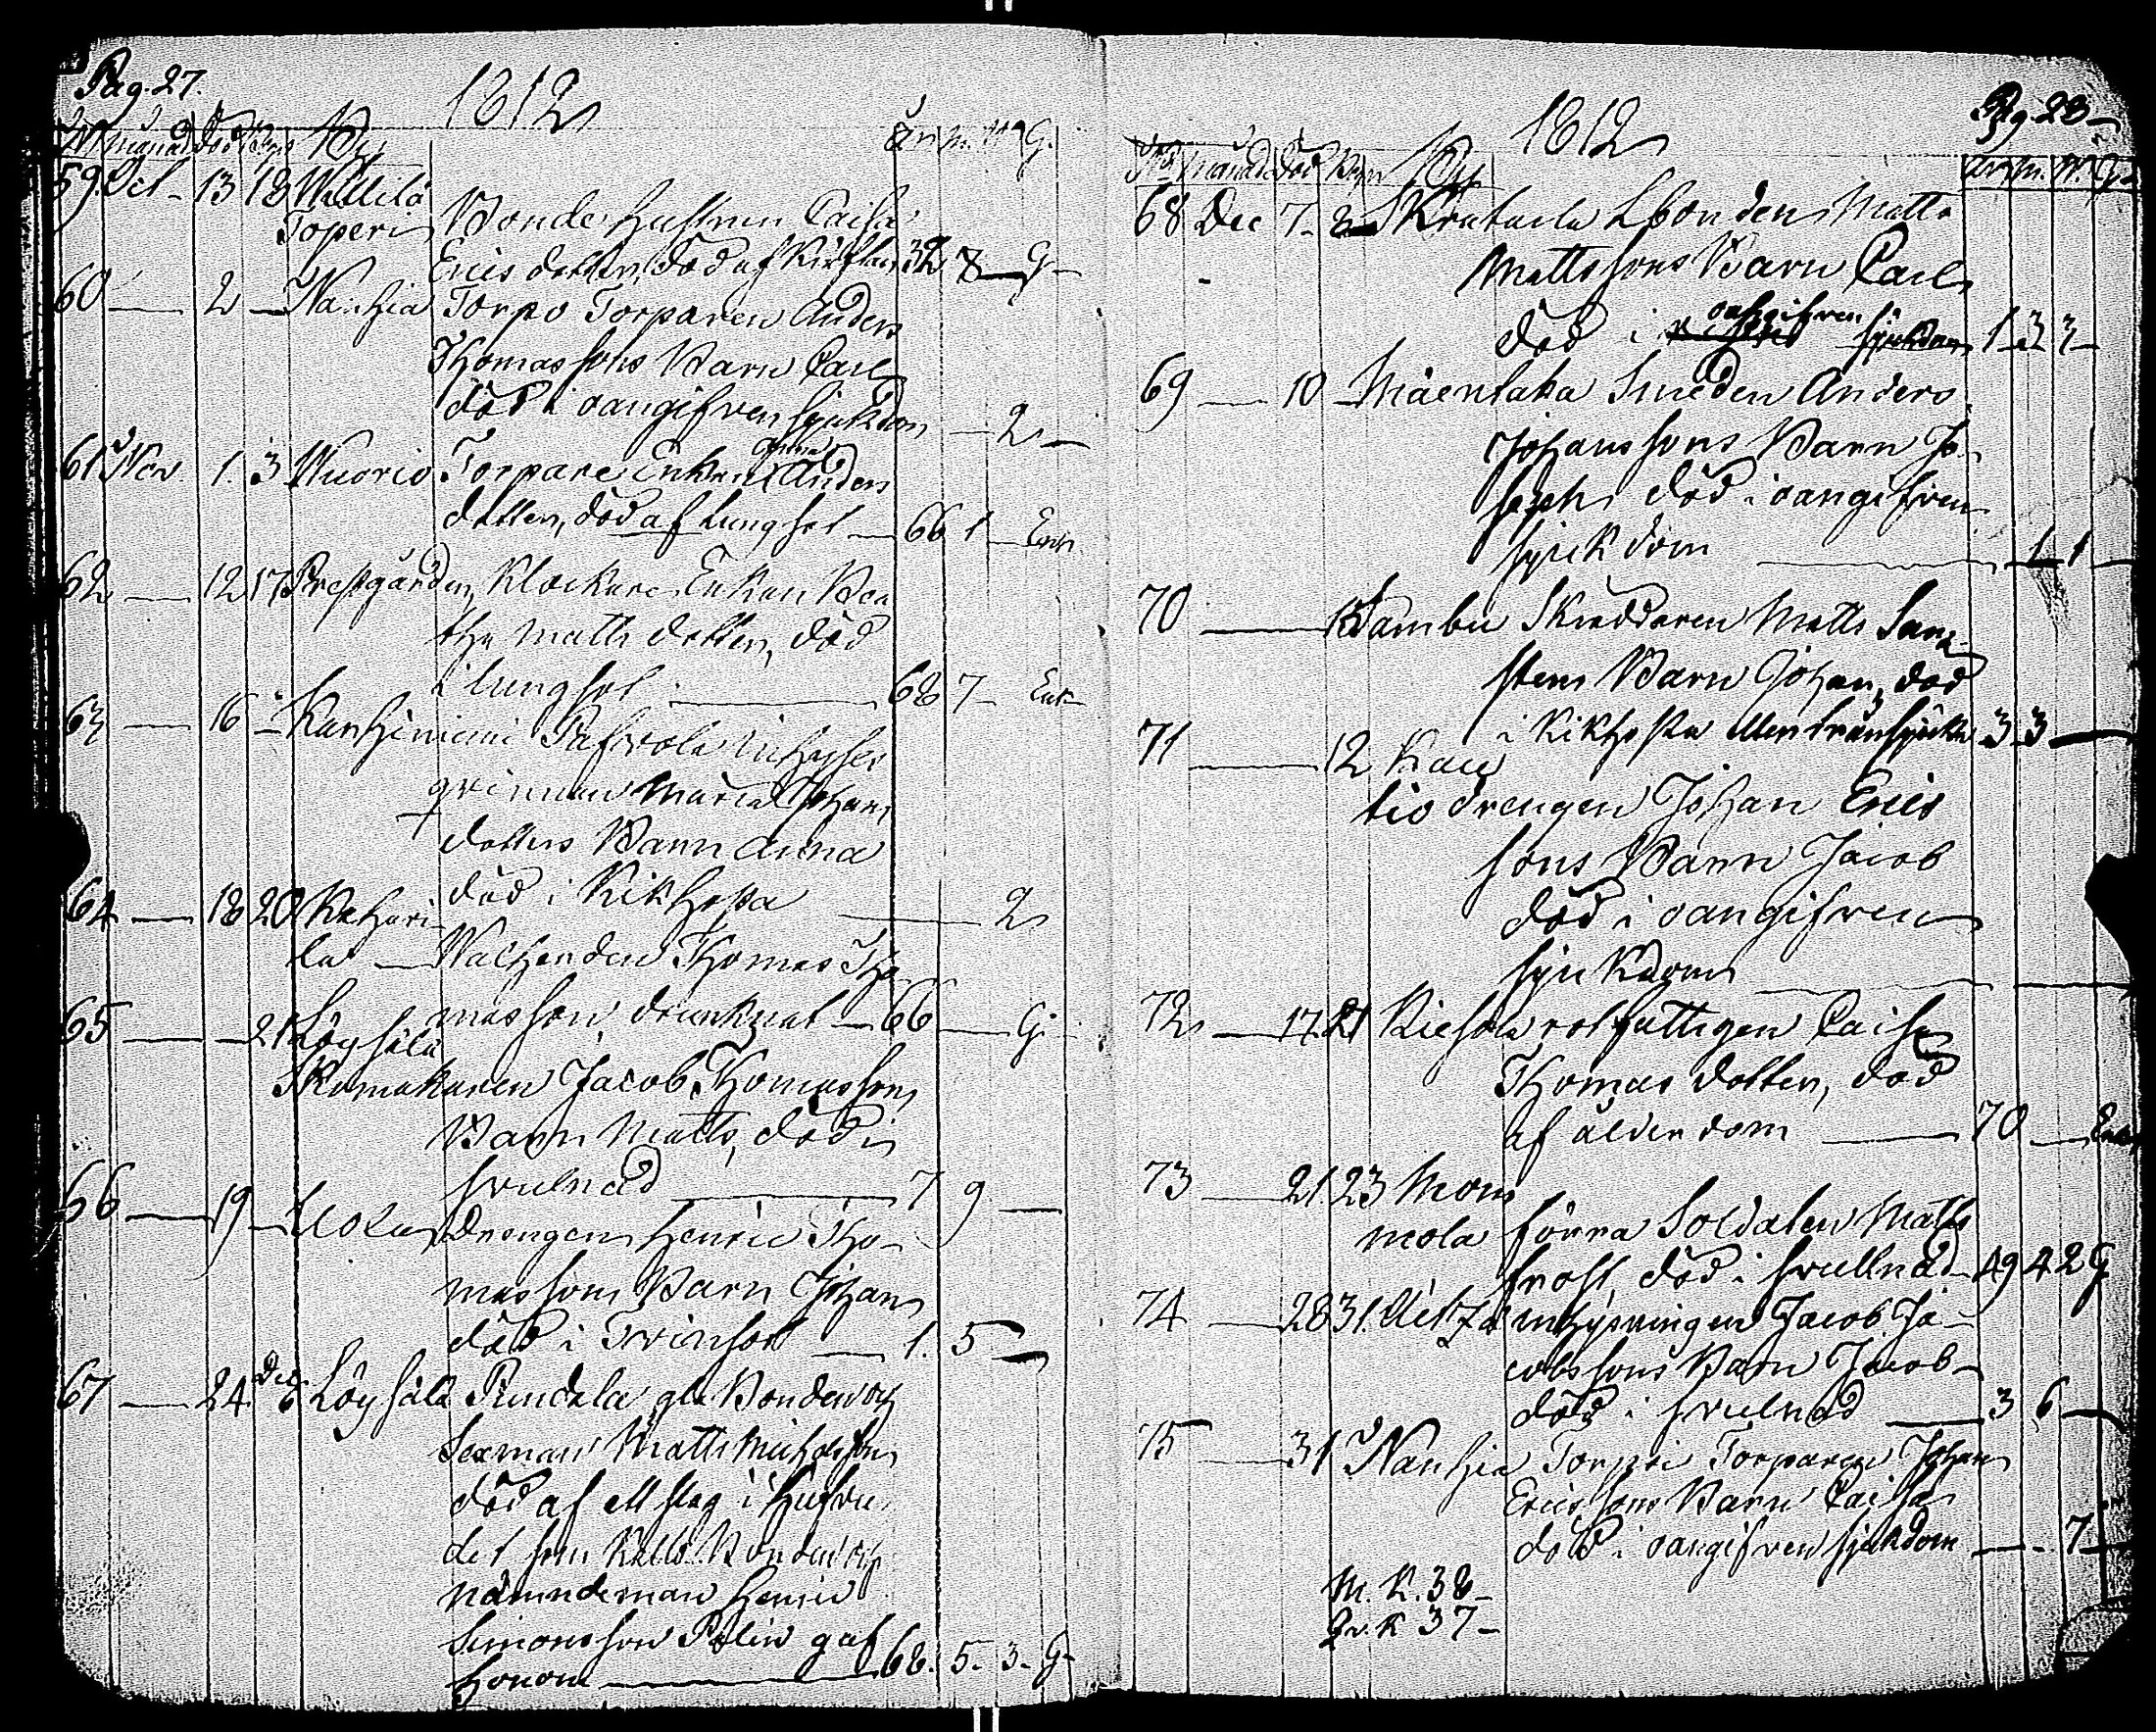 Pag. 27.
1812
Månad död Begr By år m. W G.
59. Oct - 13 18 Wittilä
Toperi Bonde Hustrun Caisa
Erics dotter, död af 32 7 — G -
60 — 2 — Nanhia Torpo Torparen Anders
Thomassons Barn Carl
död i oangifven sjukdom — 2 —
61 Nov. 1. 3 Wuorio Torpare Enkan Anna Anders
dotter, död af lungsot — 66 1 — Enk.
62 — 12 17 Prestgården, Klockare Enkan Bea
tha Matts dotter, död
i lungsot — 68 7 - Enk-
63 — 16 - Kanhiniemi Inhyses
qvinnan Maria Johans
dotters Barn Anna
död i Kikhosta — 2
64 — 18 20 Kehari
la — Walhenden Thomas Tho
masson, drunknat — 66 — G
65 — 21 Löysälä
Skomakaren Jacob Thomassons
Barn Matts, död i
svulnad — 7 9 —
66 — 19 — Drengen Henric Tho-
massons Barn Johan
död i Tvinsot — 1. 5 —
67 — 24. Dec. 6 Löysälä Pundola gle Bonden och
Sexman Matts Michelsson
död af ett slag i hufvu
det som Bonden och
nämndeman Henric
Simonsson Polin gaf
honom — 68. 5. 3. G-
Pag. 28 —
1812
No Månad död Begr By år m. W. G.
68 Dec 7 - 8 Skratula Lbonden Matts
Mattssons Barn Carl
död i oangifven sjukdom 1 3 3 —
69 — 10 — Mäentaka Smeden Anders
Johanssons Barn Jo-
seph död i oangifven
sjukdom — 1 1 —
70 — Sambu Skräddaren Matts
stens Barn Johan, död
i Kikhosta eller 3 3 —
71 — 12 Kau
tio drengen Johan Erics
sons Barn Jacob
död i oangifven
sjukdom —
72 — 17. 21 rotfattigen Caisa
Thomas dotter, död
af ålderdom — 70 — Enk
73 — 21. 23 Mom
mola förra Soldaten Matts
Frost, död i svullnad - 49 4 2 G
74 — 28 31. Aetzä inhysningen Jacob Ja-
cobssons Barn Jacob
död i svulnad — 3 6 —
75 — 31 Nanhia Torpo Torparen Johan
Ericssons Barn Caisa
död i oangifven sjukdom — - 7 —
M. K. 38 —
Qv. K 37 —